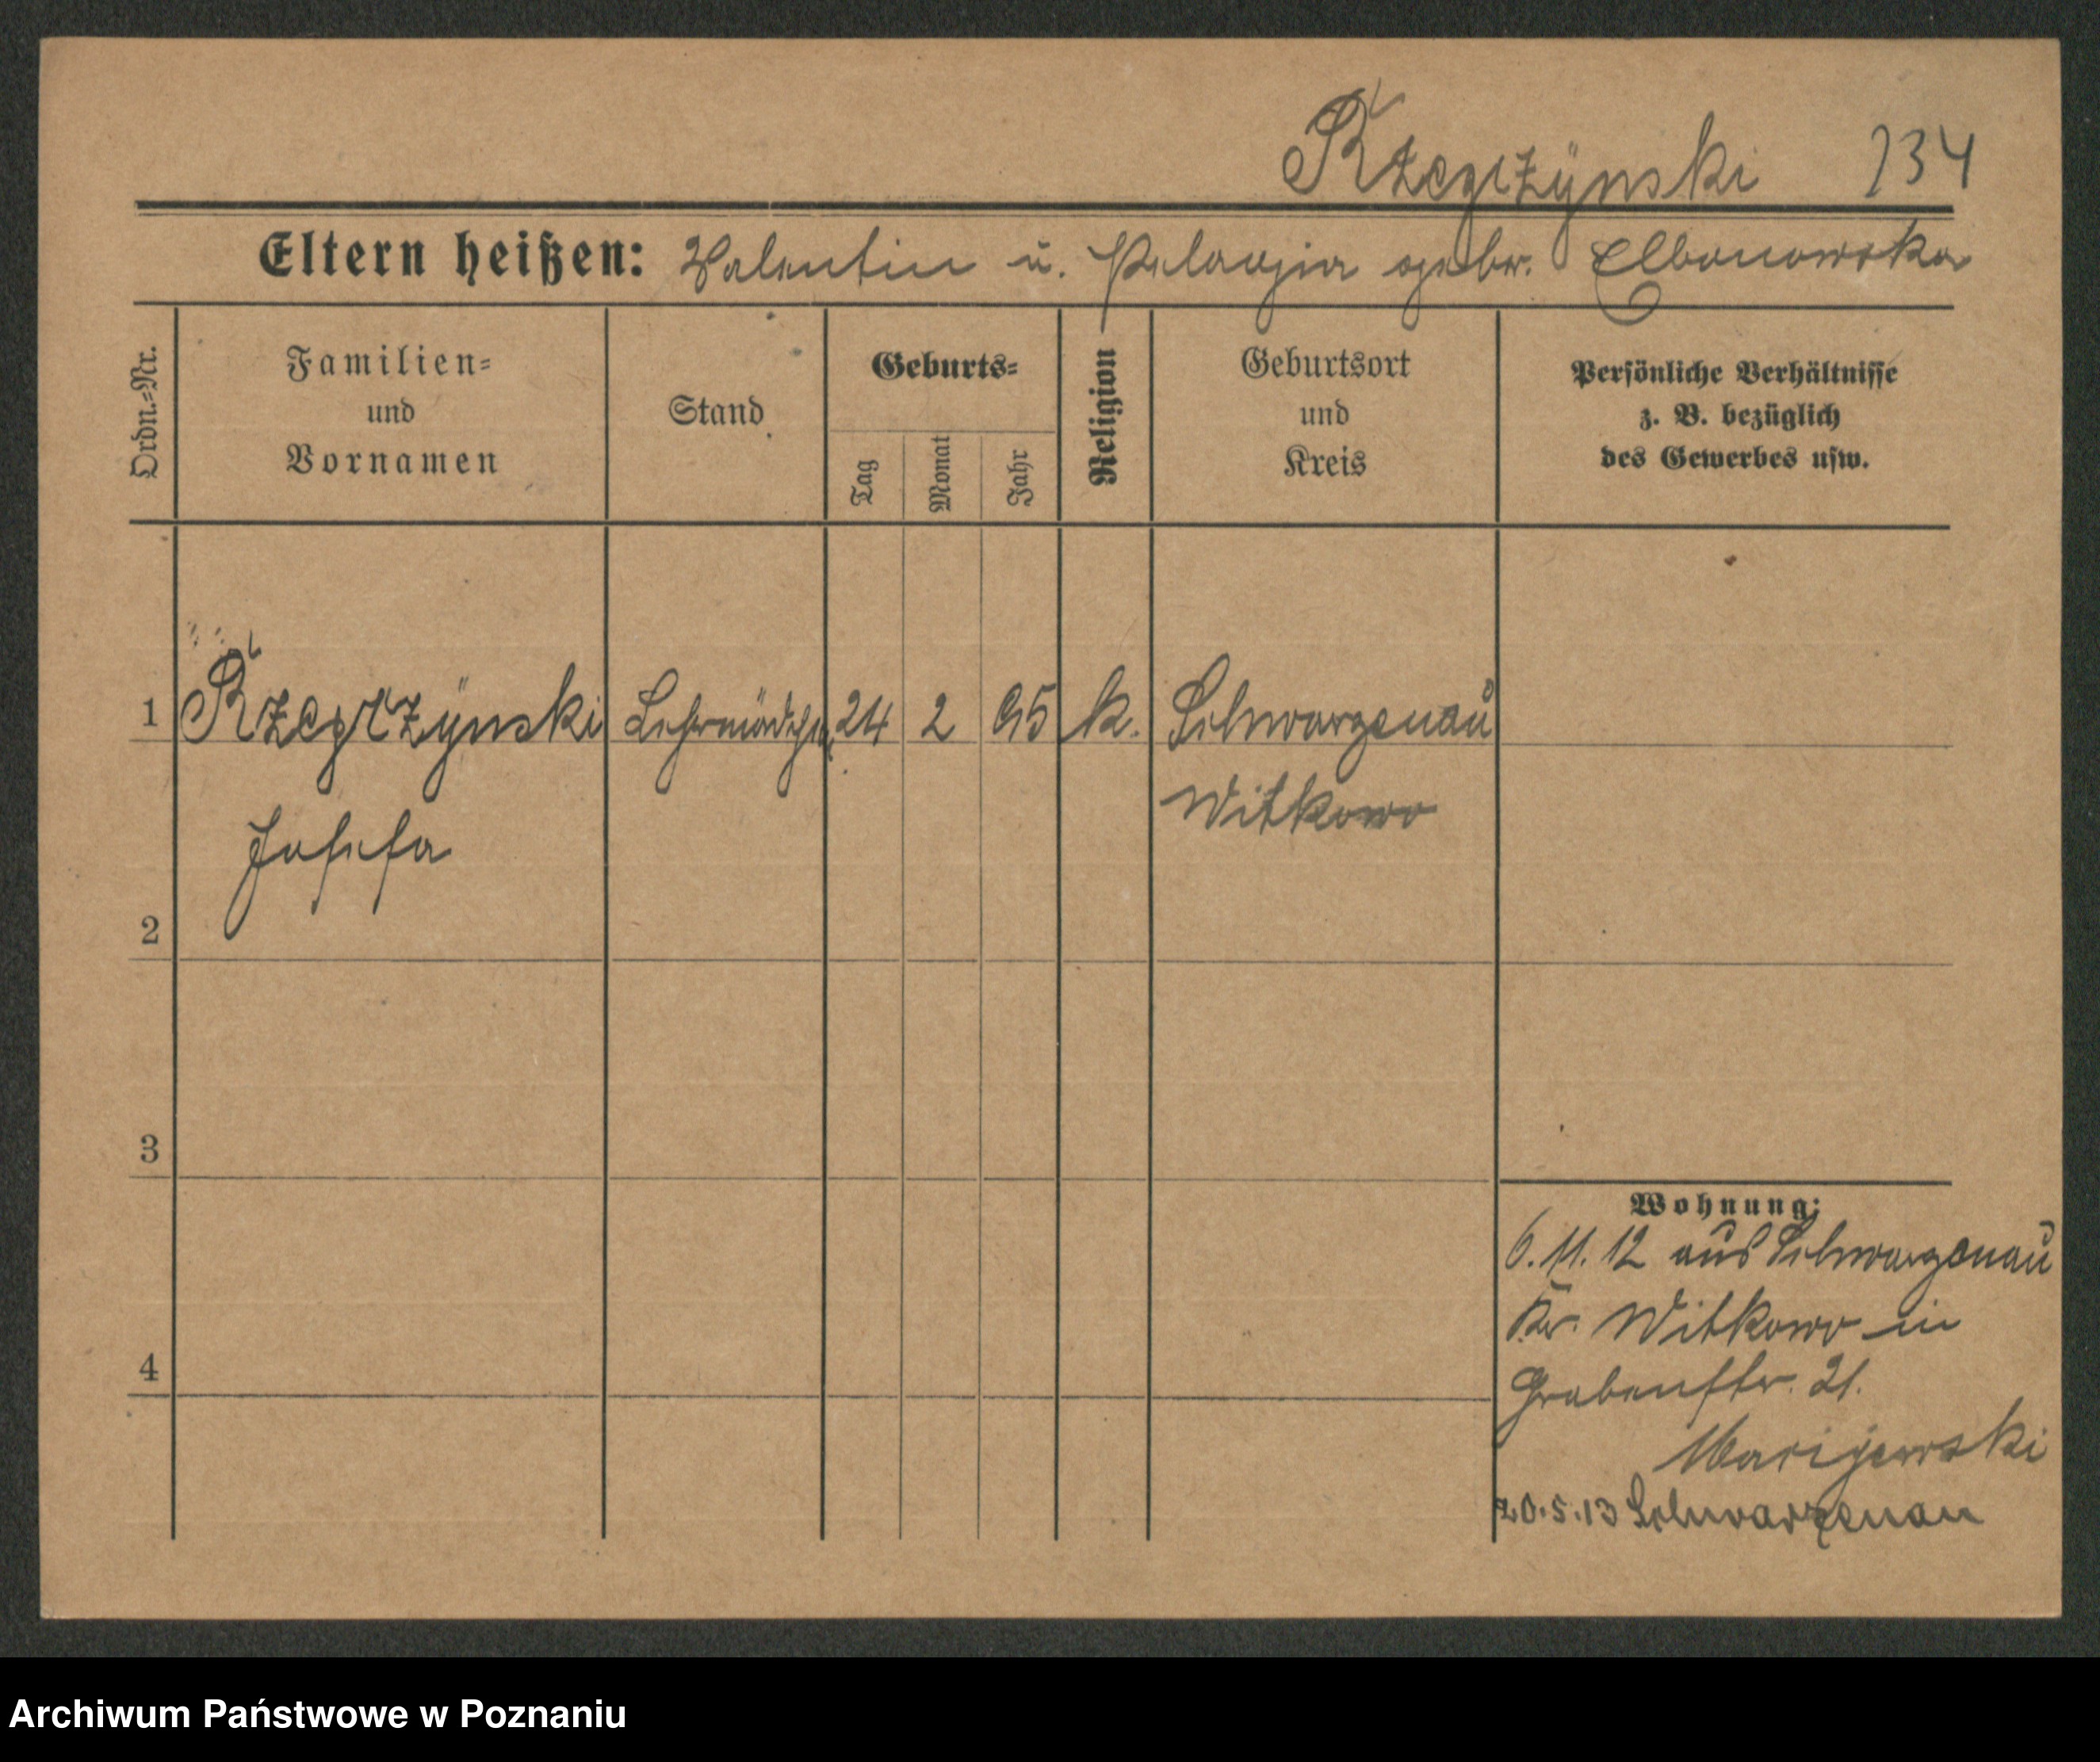 Rzegrzÿnski 734
Eltern heißen: Valentin u. Pelagia gebr. Elbanowska
Ordn.-Nr.
Familien-
und
Vornamen
Stand
Geburts-
Tag
Monat
Jahr
Religion
Geburtsort
und
Kreis
Persönliche Verhältnisse
z. B. bezüglich
des Gewerbes usw.
1 Rzegrzÿnski Lehrmädchen 24 2 95 k. Schwarzenau
Witkowo
Josefa
2
3
4
Wohnung:
6.11.12 aus Schwarzenau
Kr. Witkowo in
Grabenstr. 21.
20.5.13 Schwarzenau
Archiwum Państwowe w Poznaniu